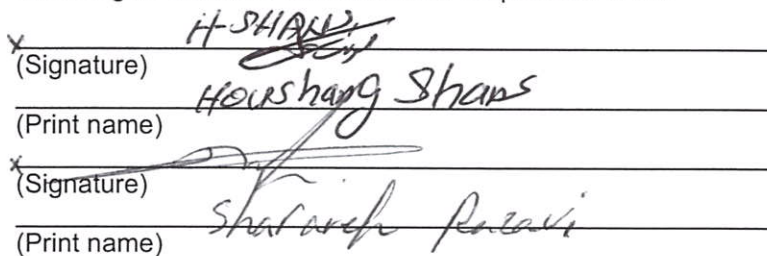 x H-SHAMS
(Signature)
Houshang Shams
(Print name)
x
(Signature)
Sharareh Razavi
(Print name)